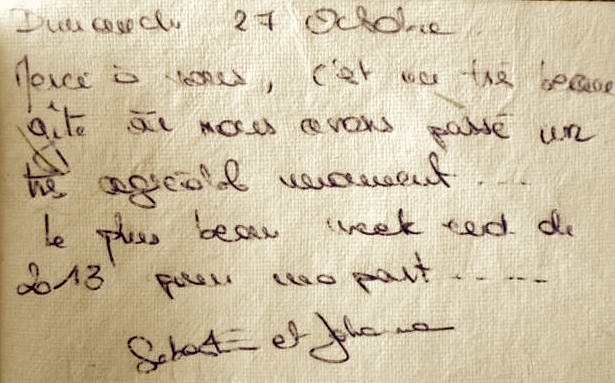 Dimanche 27 Octobre
Merci à vous, c'est un très beau
gîte où nous avons passé un
très agréable moment....
Le plus beau week end de
2013 pour ma part.....
Sebastien et Johanna